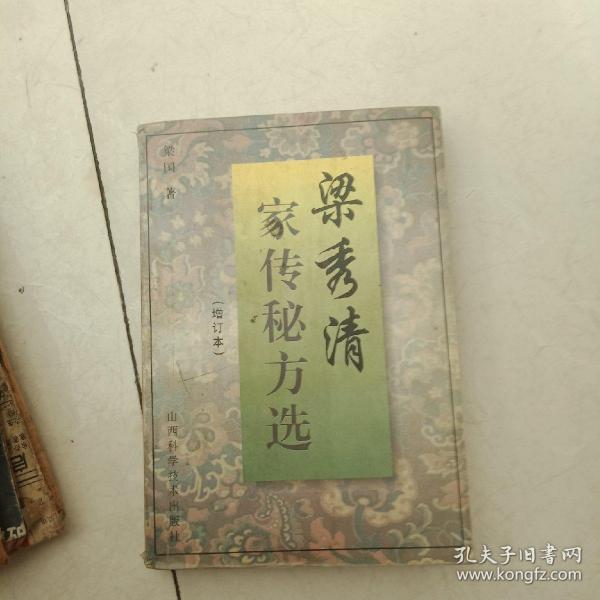 梁秀清
家传秘方选
(增订本)
梁国 著
山西科学技术出版社
孔夫子旧书网
www.kongfz.com